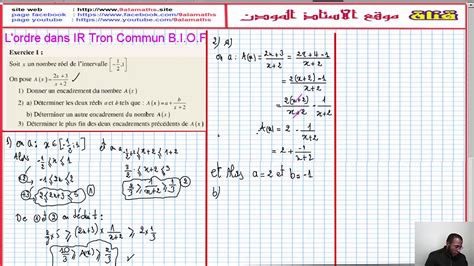 site web : http://www.9alamaths.site
page facebook : https://www.facebook.com/9alamaths
youtube : https://www.youtube.com/9alamaths
موقع الأستاذ المودن
L'ordre dans IR Tron Commun B.I.O.F
Exercice 1 :
Soit x un nombre réel de l'intervalle [-1/2 ; 1]
On pose A(x) = (2x+3)/(x+2) ✓
1) Donner un encadrement du nombre A(x)
2) a) Déterminer les deux réels a et b tels que : A(x) = a + b/(x+2)
b) Déterminer un autre encadrement du nombre A(x)
3) Déterminer le plus fin des deux encadrements précédents de A(x)
1) on a : x ∈ [-1/2 ; 1]
Alors -1/2 ≤ x ≤ 1
2 ≤ 2x+3 ≤ 5 ①
3/2 ≤ x+2 ≤ 3
2/3 ≥ 1/(x+2) ≥ 1/3 ②
De ① et ② on déduit :
2/3 × 5 ≥ (2x+3) × 1/(x+2) ≥ 2 × 1/3
10/3 ≥ A(x) ≥ 2/3
2) a)
on a : A(x) = (2x+3)/(x+2) = (2x+4-1)/(x+2)
= (2(x+2)-1)/(x+2)
= 2(x+2)/(x+2) - 1/(x+2)
A(x) = 2 - 1/(x+2)
= 2 + -1/(x+2)
et Alors a = 2 et b = -1
b)